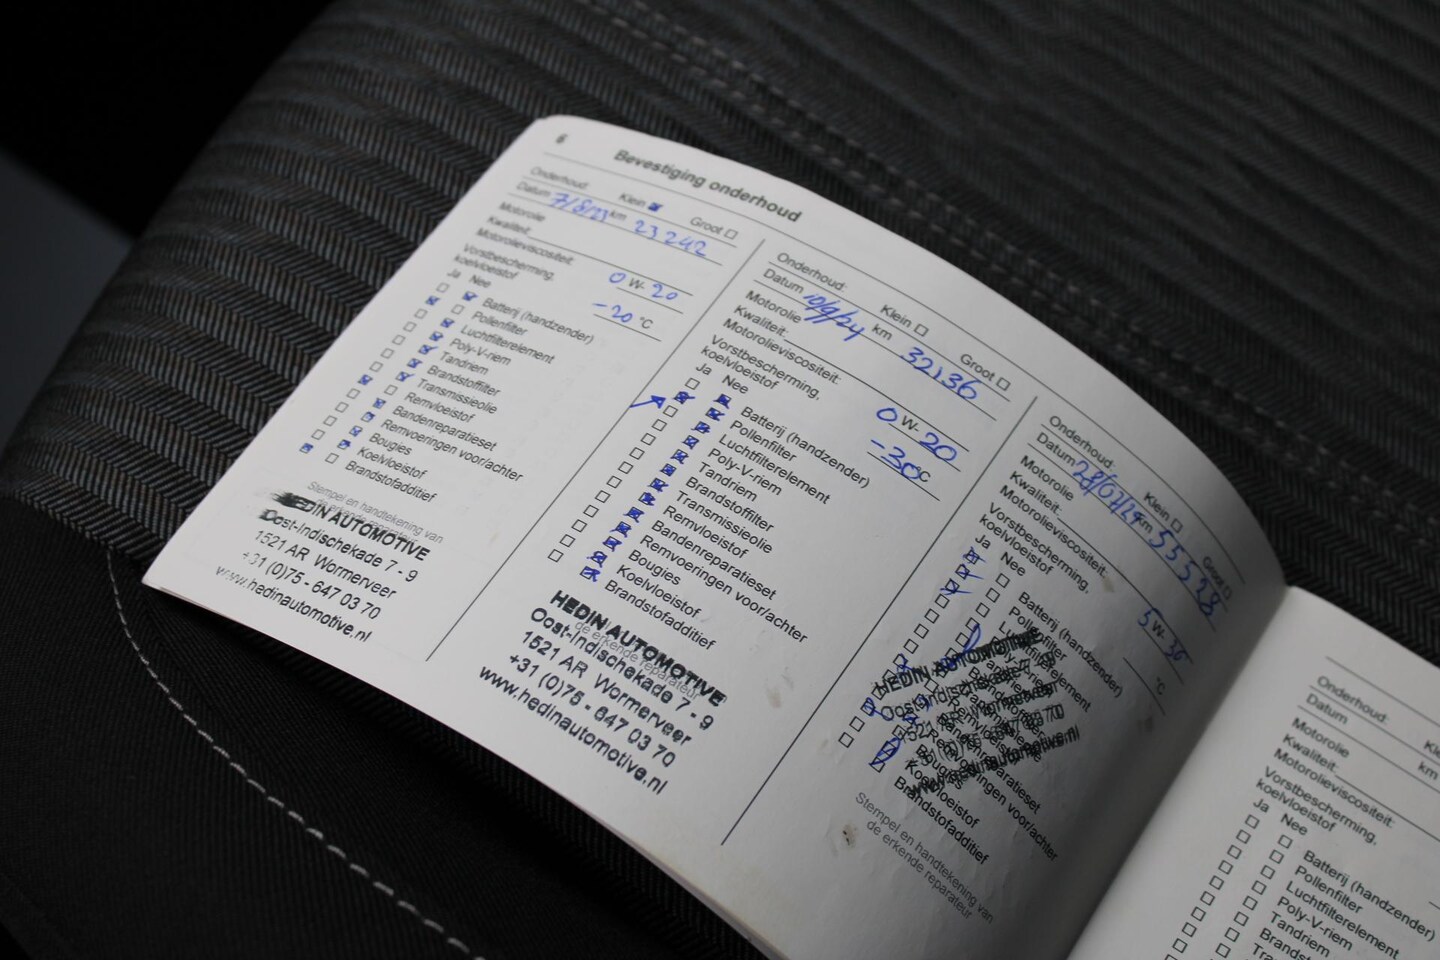 6
Bevestiging onderhoud
Onderhoud: Klein Groot
Datum 7/8/23 km 23242
Motorolie
Kwaliteit:
Motorolieviscositeit: 0 W- 20
Vorstbescherming,
koelvloeistof -20 °C
Ja Nee
Batterij (handzender)
Pollenfilter
Luchtfilterelement
Poly-V-riem
Tandriem
Brandstoffilter
Transmissieolie
Remvloeistof
Bandenreparatieset
Remvoeringen voor/achter
Bougies
Koelvloeistof
Brandstofadditief
Stempel en handtekening van
de erkende reparateur
HEDIN AUTOMOTIVE
Oost-Indischekade 7 - 9
1521 AR Wormerveer
+31 (0)75 - 647 03 70
www.hedinautomotive.nl
Onderhoud: Klein Groot
Datum 10/9/24 km 32136
Motorolie
Kwaliteit:
Motorolieviscositeit: 0 W- 20
Vorstbescherming,
koelvloeistof -30 °C
Ja Nee
Batterij (handzender)
Pollenfilter
Luchtfilterelement
Poly-V-riem
Tandriem
Brandstoffilter
Transmissieolie
Remvloeistof
Bandenreparatieset
Remvoeringen voor/achter
Bougies
Koelvloeistof
Brandstofadditief
HEDIN AUTOMOTIVE
de erkende reparateur
Oost-Indischekade 7 - 9
1521 AR Wormerveer
+31 (0)75 - 647 03 70
www.hedinautomotive.nl
Onderhoud: Klein Groot
Datum km 55528
Motorolie
Kwaliteit:
Motorolieviscositeit: 5 W- 30
Vorstbescherming,
koelvloeistof °C
Ja Nee
Batterij (handzender)
Pollenfilter
Luchtfilterelement
HEDIN AUTOMOTIVE
Bandenreparatieset
Remvoeringen voor/achter
Bougies
Koelvloeistof
Brandstofadditief
Stempel en handtekening van
de erkende reparateur
Onderhoud:
Datum km
Motorolie
Kwaliteit:
Motorolieviscositeit:
Vorstbescherming,
koelvloeistof
Ja Nee
Batterij (handzender)
Pollenfilter
Luchtfilterelement
Poly-V-riem
Tandriem